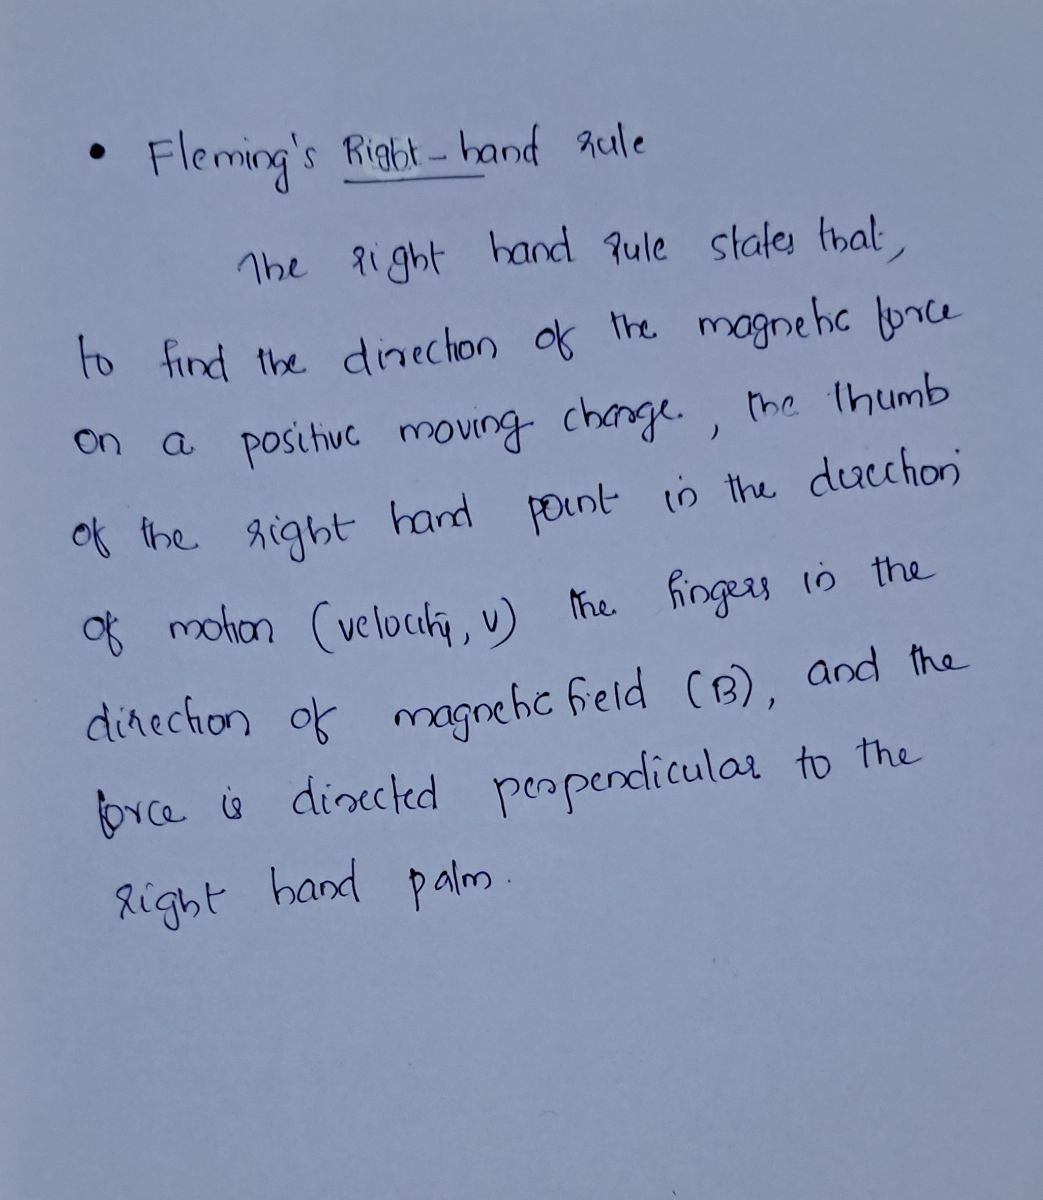 • Fleming's Right-hand rule
The right hand rule states that,
to find the direction of the magnetic force
on a positive moving charge, the thumb
of the right hand point in the direction
of motion (velocity, v) the fingers in the
direction of magnetic field (B), and the
force is directed perpendicular to the
right hand palm.